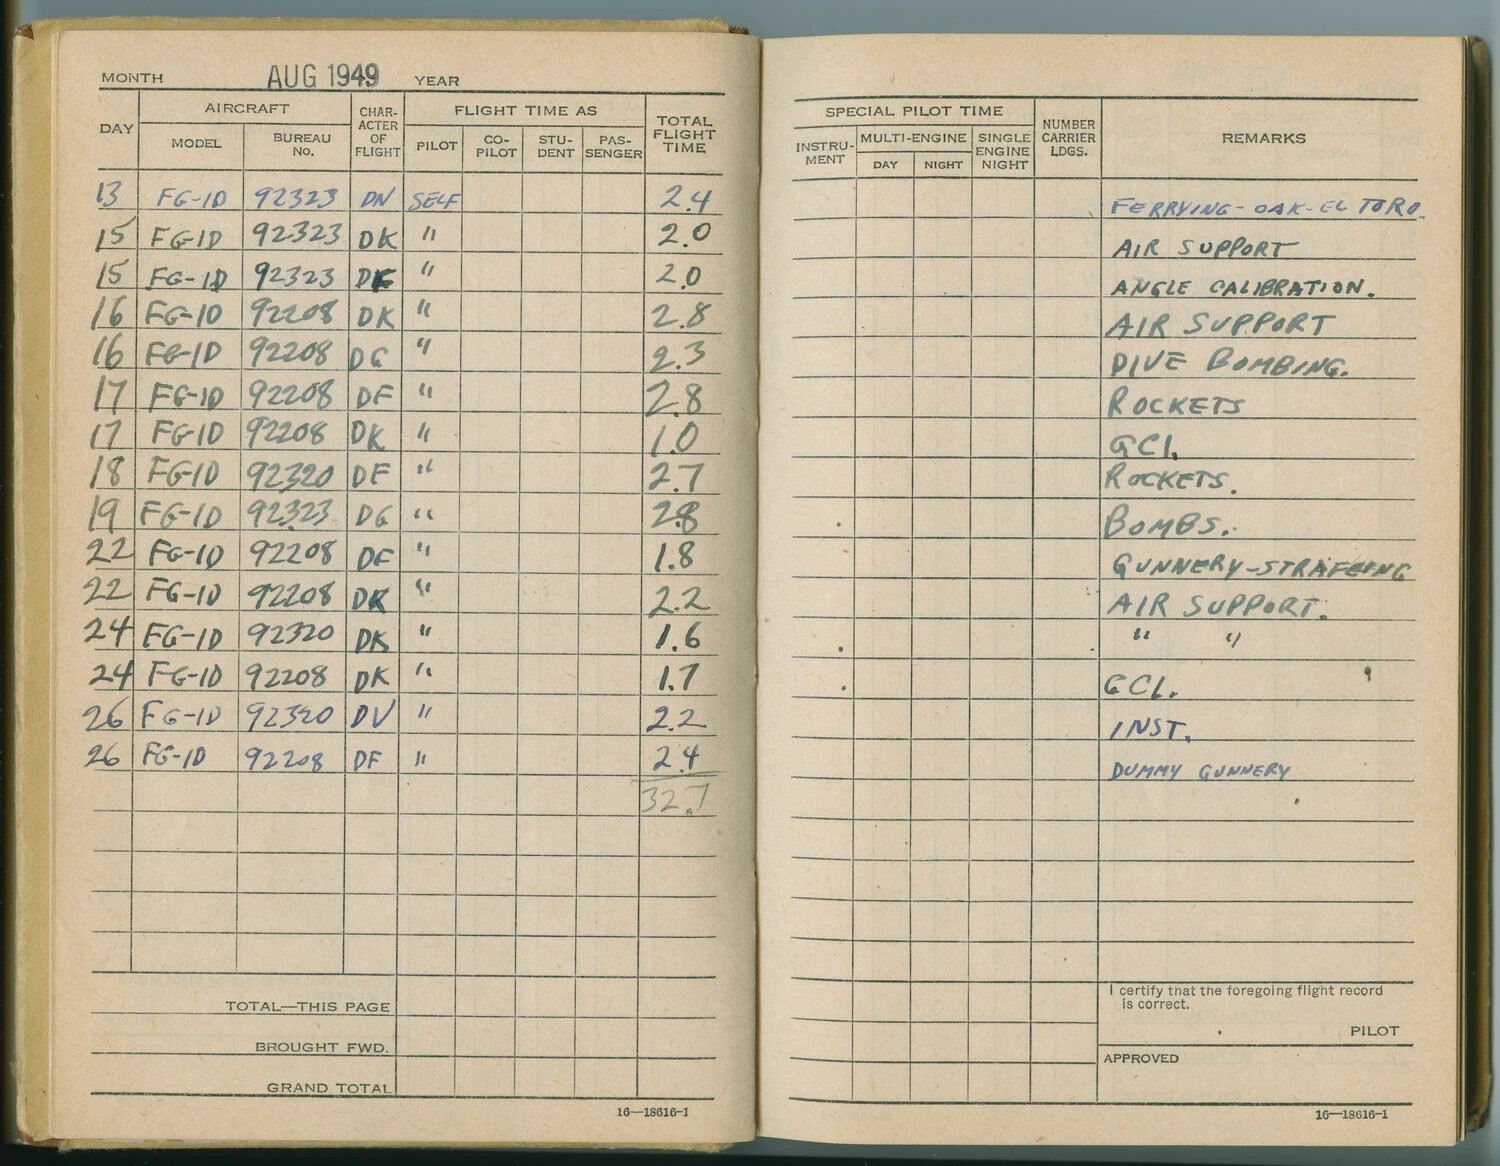 MONTH AUG 1949 YEAR
DAY AIRCRAFT CHAR-ACTER OF FLIGHT FLIGHT TIME AS TOTAL FLIGHT TIME
MODEL BUREAU No. PILOT CO-PILOT STU-DENT PAS-SENGER
13 FG-1D 92323 DN SELF 2.4
15 FG-1D 92323 DK " 2.0
15 FG-1D 92323 DK " 2.0
16 FG-1D 92208 DK " 2.8
16 FG-1D 92208 DG " 2.3
17 FG-1D 92208 DF " 2.8
17 FG-1D 92208 DK " 1.0
18 FG-1D 92320 DF " 2.7
19 FG-1D 92323 DG " 2.8
22 FG-1D 92208 DF " 1.8
22 FG-1D 92208 DK " 2.2
24 FG-1D 92320 DK " 1.6
24 FG-1D 92208 DK " 1.7
26 FG-1D 92320 DV " 2.2
26 FG-1D 92208 DF " 2.4
32.7
TOTAL—THIS PAGE
BROUGHT FWD.
GRAND TOTAL
16—18616-1
SPECIAL PILOT TIME NUMBER CARRIER LDGS. REMARKS
INSTRU-MENT MULTI-ENGINE SINGLE ENGINE NIGHT
DAY NIGHT
FERRYING - OAK - EL TORO.
AIR SUPPORT
ANGLE CALIBRATION.
AIR SUPPORT
DIVE BOMBING.
ROCKETS
GCI.
ROCKETS.
BOMBS.
GUNNERY-STRAFEING
AIR SUPPORT.
" "
GCI.
INST.
DUMMY GUNNERY
I certify that the foregoing flight record
is correct.
PILOT
APPROVED
16—18616-1